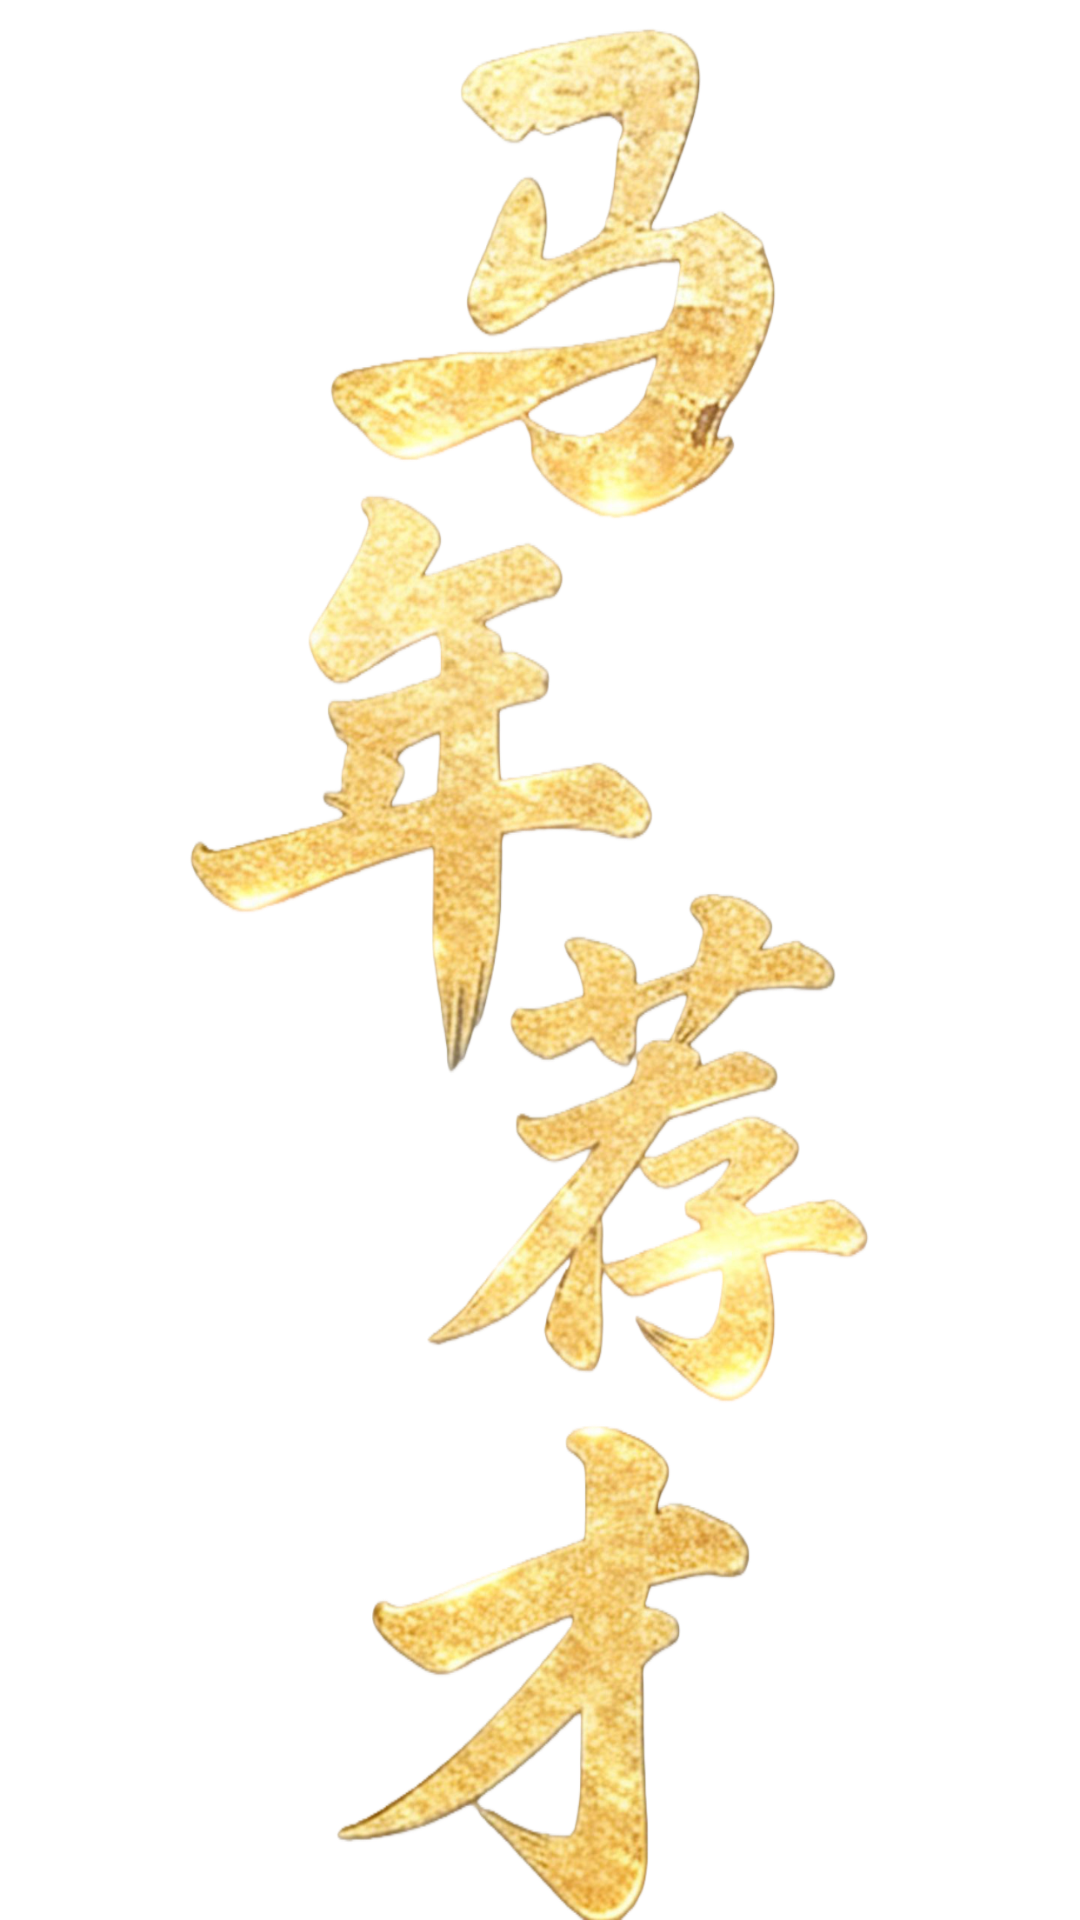 马年荐才